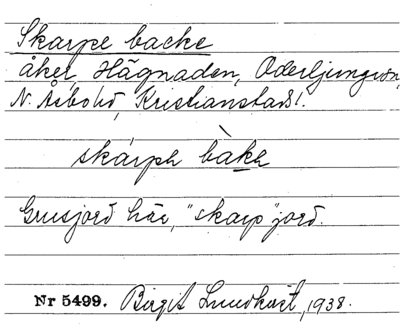 Skarpe backe
åker, Hägnaden, Oderljunga sn,
N. Åsbo hd, Kristianstads l.
skárpə bàkə
Grusjord här, "skarp" jord.
Nr 5499. Birgit Lundkvist, 1938.